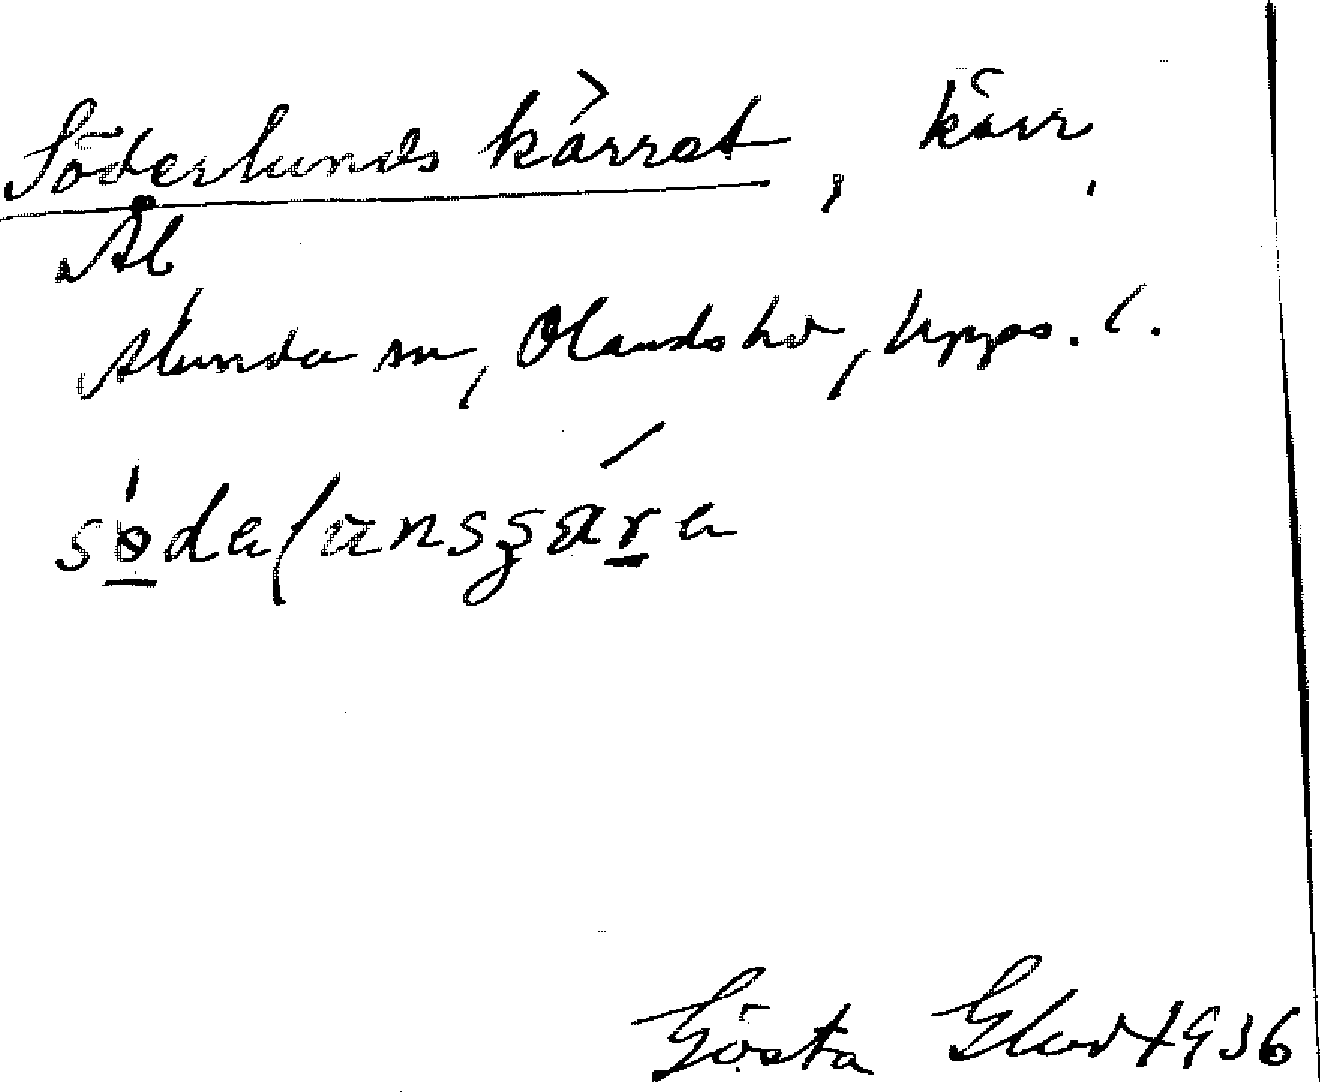 Söderlunds kärret, kärr,
Ål
Alunda sn, Olands hd, Upps. l.
södalunsgära
Gösta Glad 1936